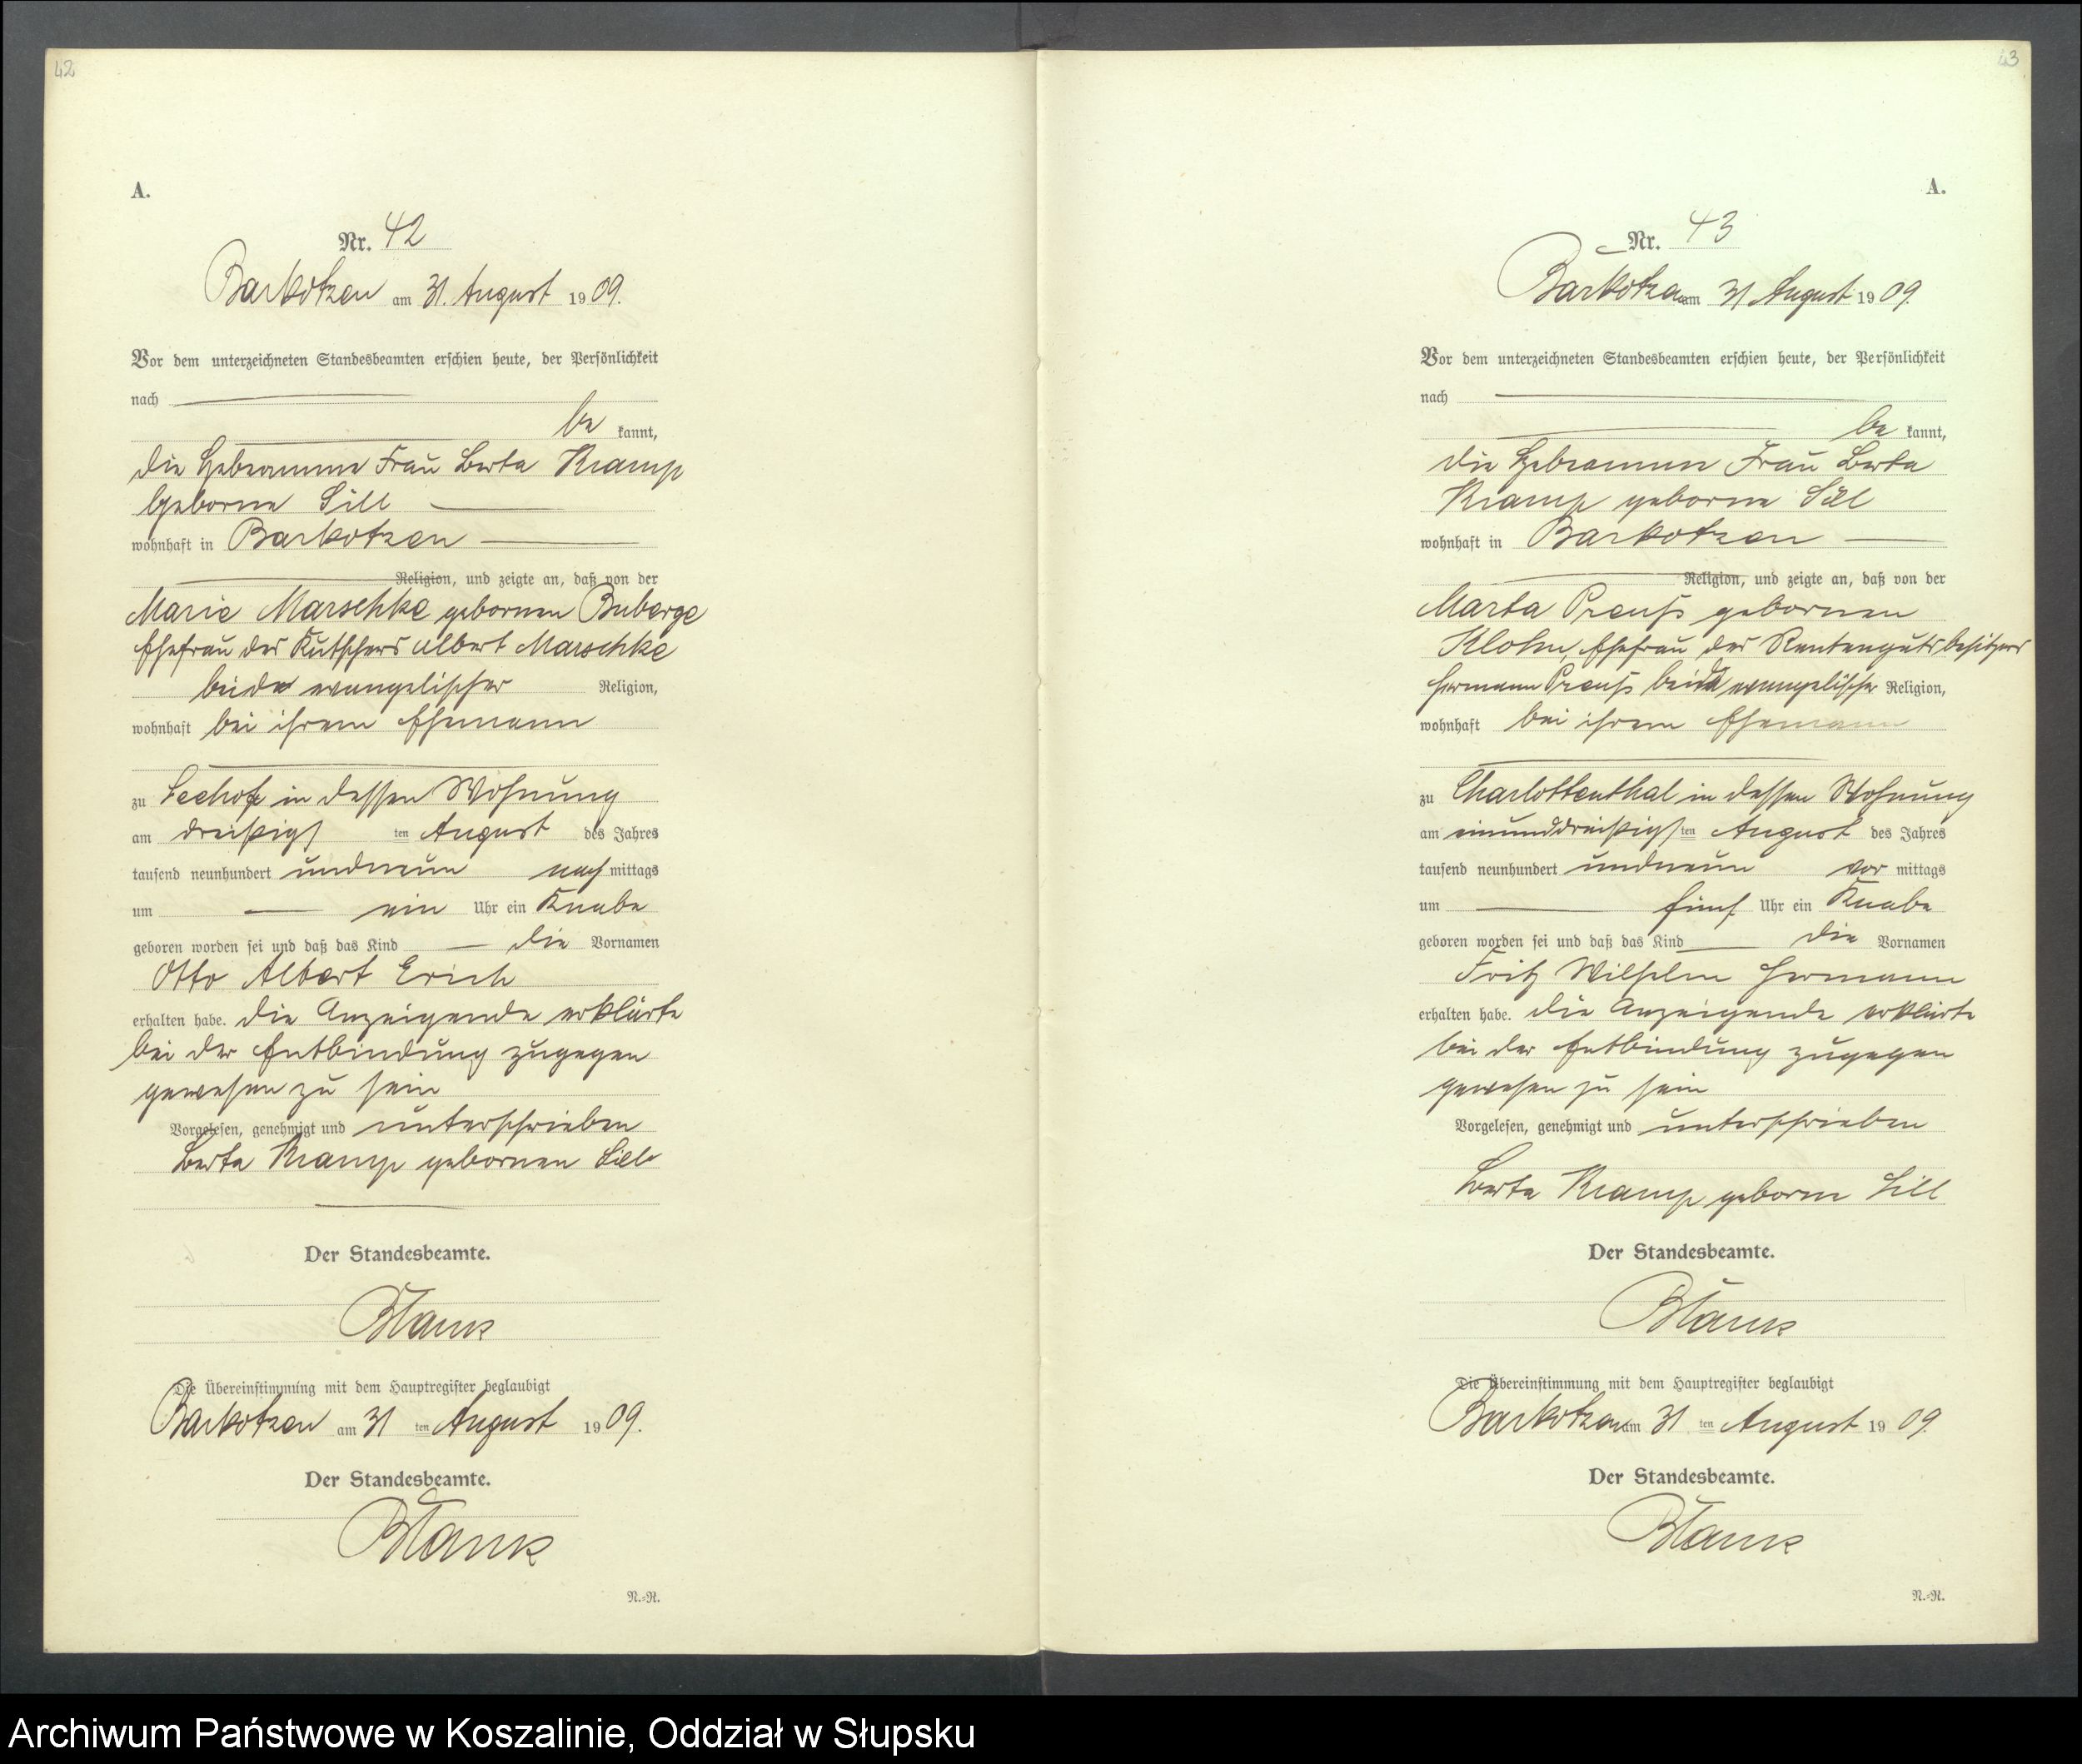 42
A.
Nr. 42
Barkotzen am 31. August 1909.
Vor dem unterzeichneten Standesbeamten erschien heute, der Persönlichkeit
nach
be kannt,
die Hebeamme Frau Berta Kramp
geborne Sill
wohnhaft in Barkotzen
Religion, und zeigte an, daß von der
Marie Marschke gebornen Buberge
Ehefrau des Kutschers Albert Marschke
beide evangelischer Religion,
wohnhaft bei ihrem Ehemann
zu Seehof in dessen Wohnung
am dreißigs ten August des Jahres
tausend neunhundert undneun nach mittags
um ein Uhr ein Knabe
geboren worden sei und daß das Kind die Vornamen
Otto Albert Erich
erhalten habe. Die Anzeigende erklärte
bei der Entbindung zugegen
gewesen zu sein
Vorgelesen, genehmigt und unterschrieben
Berta Kramp gebornen Sill
Der Standesbeamte.
Die Übereinstimmung mit dem Hauptregister beglaubigt
Barkotzen am 31 ten August 1909.
Der Standesbeamte.
N.=R.
43
A.
Nr. 43
Barkotzen am 31 August 1909.
Vor dem unterzeichneten Standesbeamten erschien heute, der Persönlichkeit
nach
be kannt,
die Hebeamme Frau Berta
Kramp geborne Sill
wohnhaft in Barkotzen
Religion, und zeigte an, daß von der
Marta Preuß gebornen
Ehefrau des Rentengutsbesitzers
Hermann Preuß beide evangelischer Religion,
wohnhaft bei ihrem Ehemann
zu Charlottenthal in dessen Wohnung
am einunddreißigs ten August des Jahres
tausend neunhundert undneun vor mittags
um fünf Uhr ein Knabe
geboren worden sei und daß das Kind die Vornamen
Fritz Wilhelm Hermann
erhalten habe. Die Anzeigende erklärte
bei der Entbindung zugegen
gewesen zu sein
Vorgelesen, genehmigt und unterschrieben
Berta Kramp geborne Sill
Der Standesbeamte.
Die Übereinstimmung mit dem Hauptregister beglaubigt
Barkotzen am 31 ten August 1909.
Der Standesbeamte.
N.=R.
Archiwum Państwowe w Koszalinie, Oddział w Słupsku